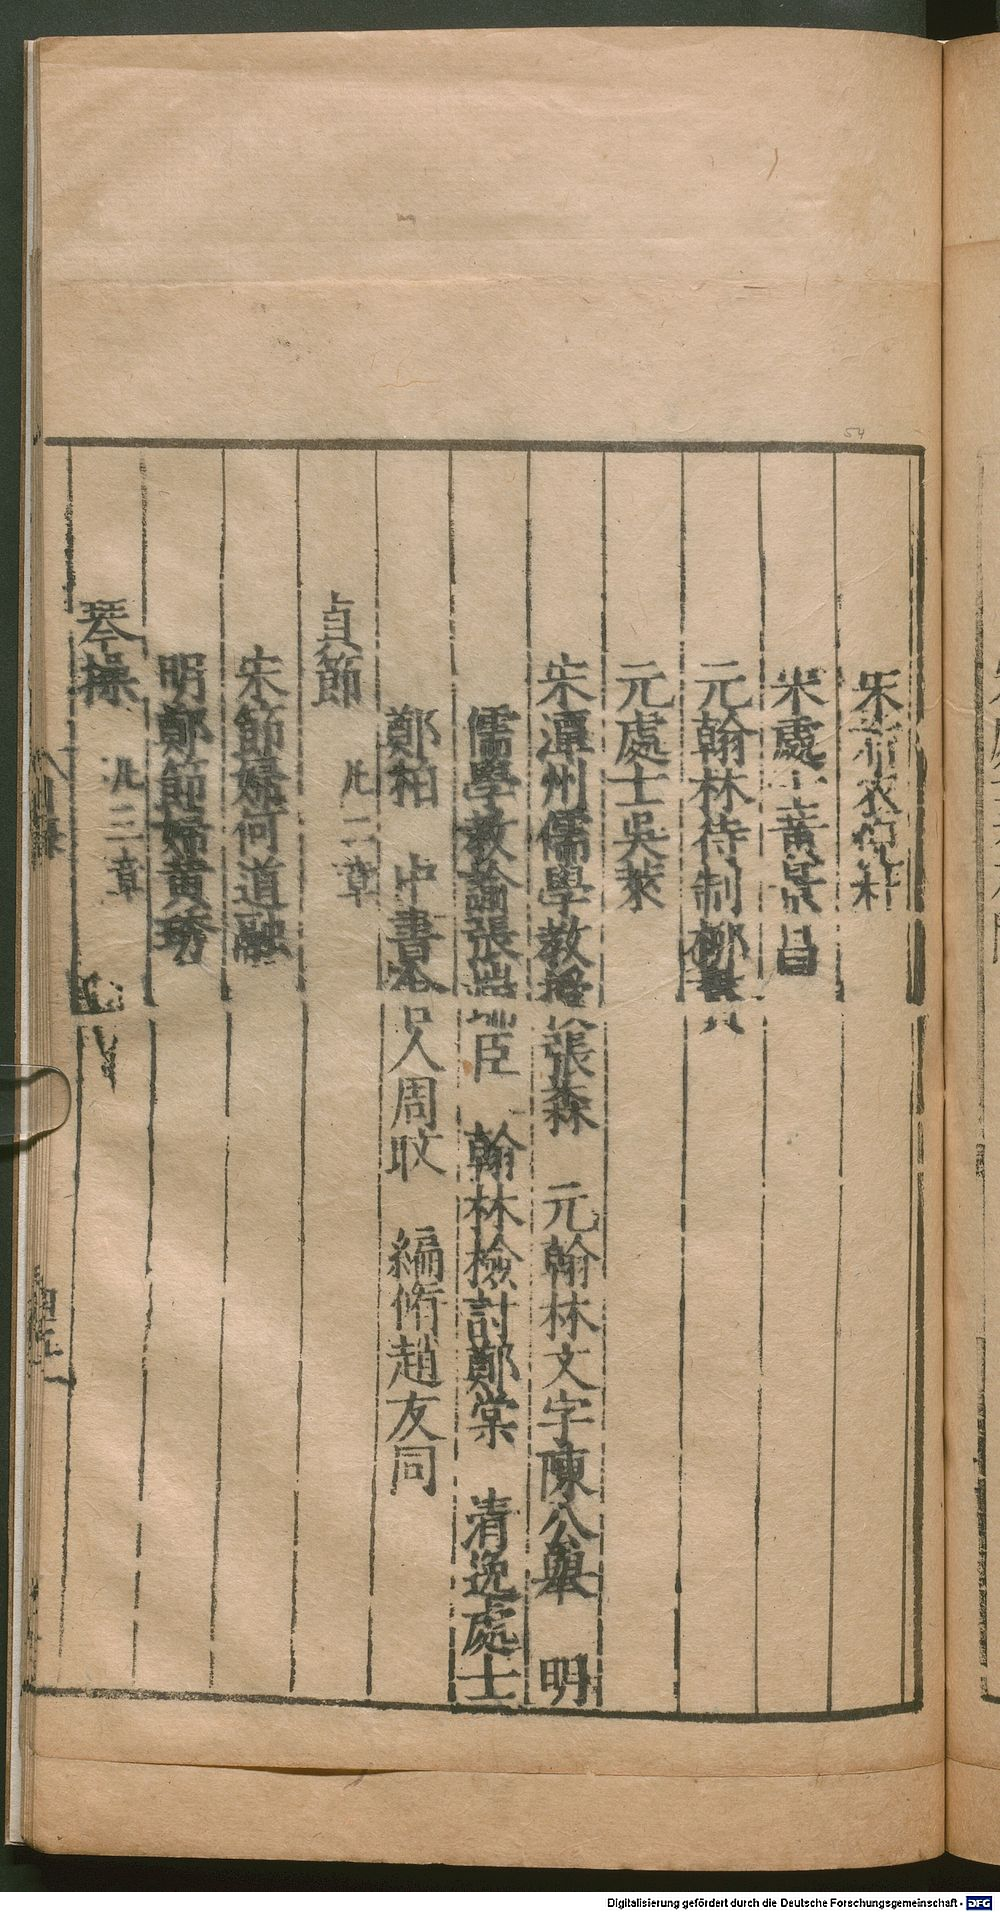 宋布衣何朴
宋處士黃景昌
元翰林待制柳貫
元處士吳萊
宋潭州儒學教授張森 元翰林文字陳公舉 明
儒學教諭張端臣 翰林檢討鄭棠 清逸處士
鄭栢 中書舍人周㫋 編脩趙友同
貞節 凡二章
宋節婦何道融
明鄭節婦黃琇
琴操 凡三章
目錄
四五
54
Digitalisierung gefördert durch die Deutsche Forschungsgemeinschaft - DFG